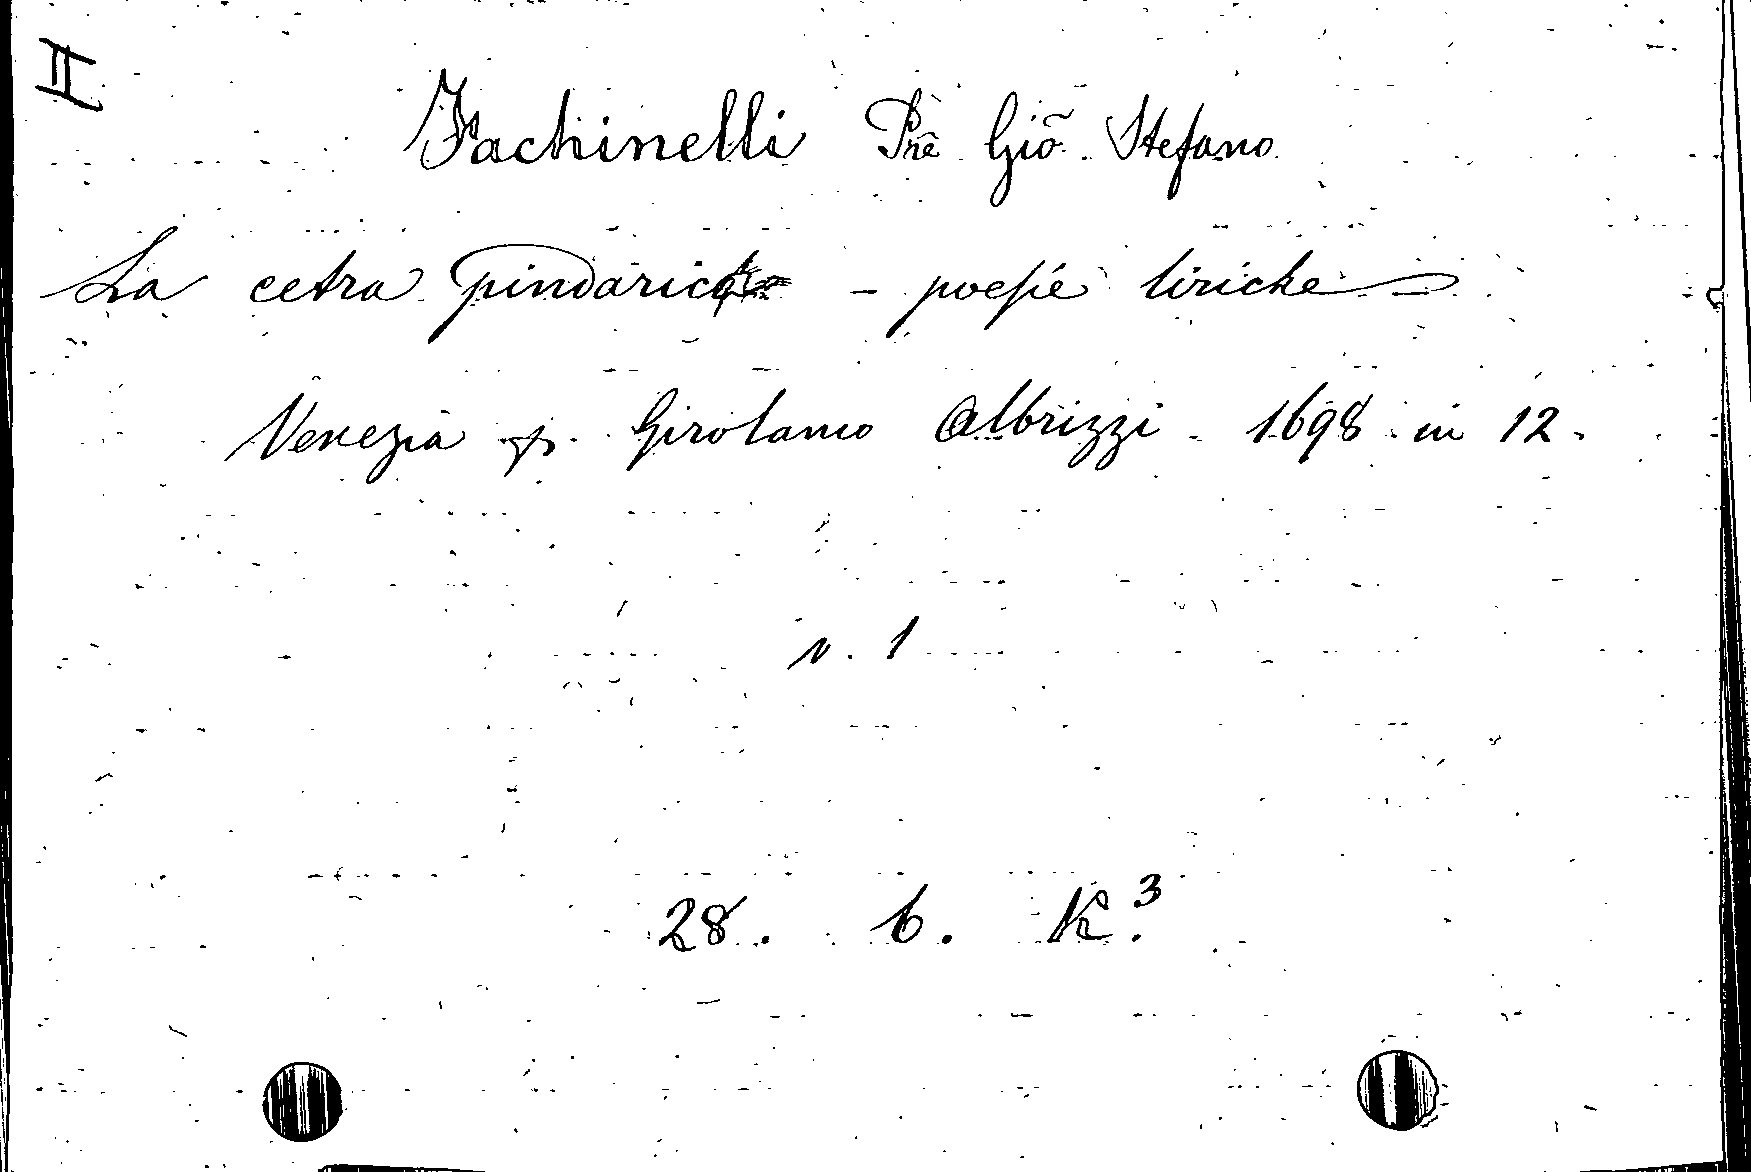 II
Fachinelli Prê Giõ Stefano
La cetra pindarica - poesie liriche
Venezia p. Girolamo Albrizzi - 1698 in 12.
v. 1
28. 6. K.³